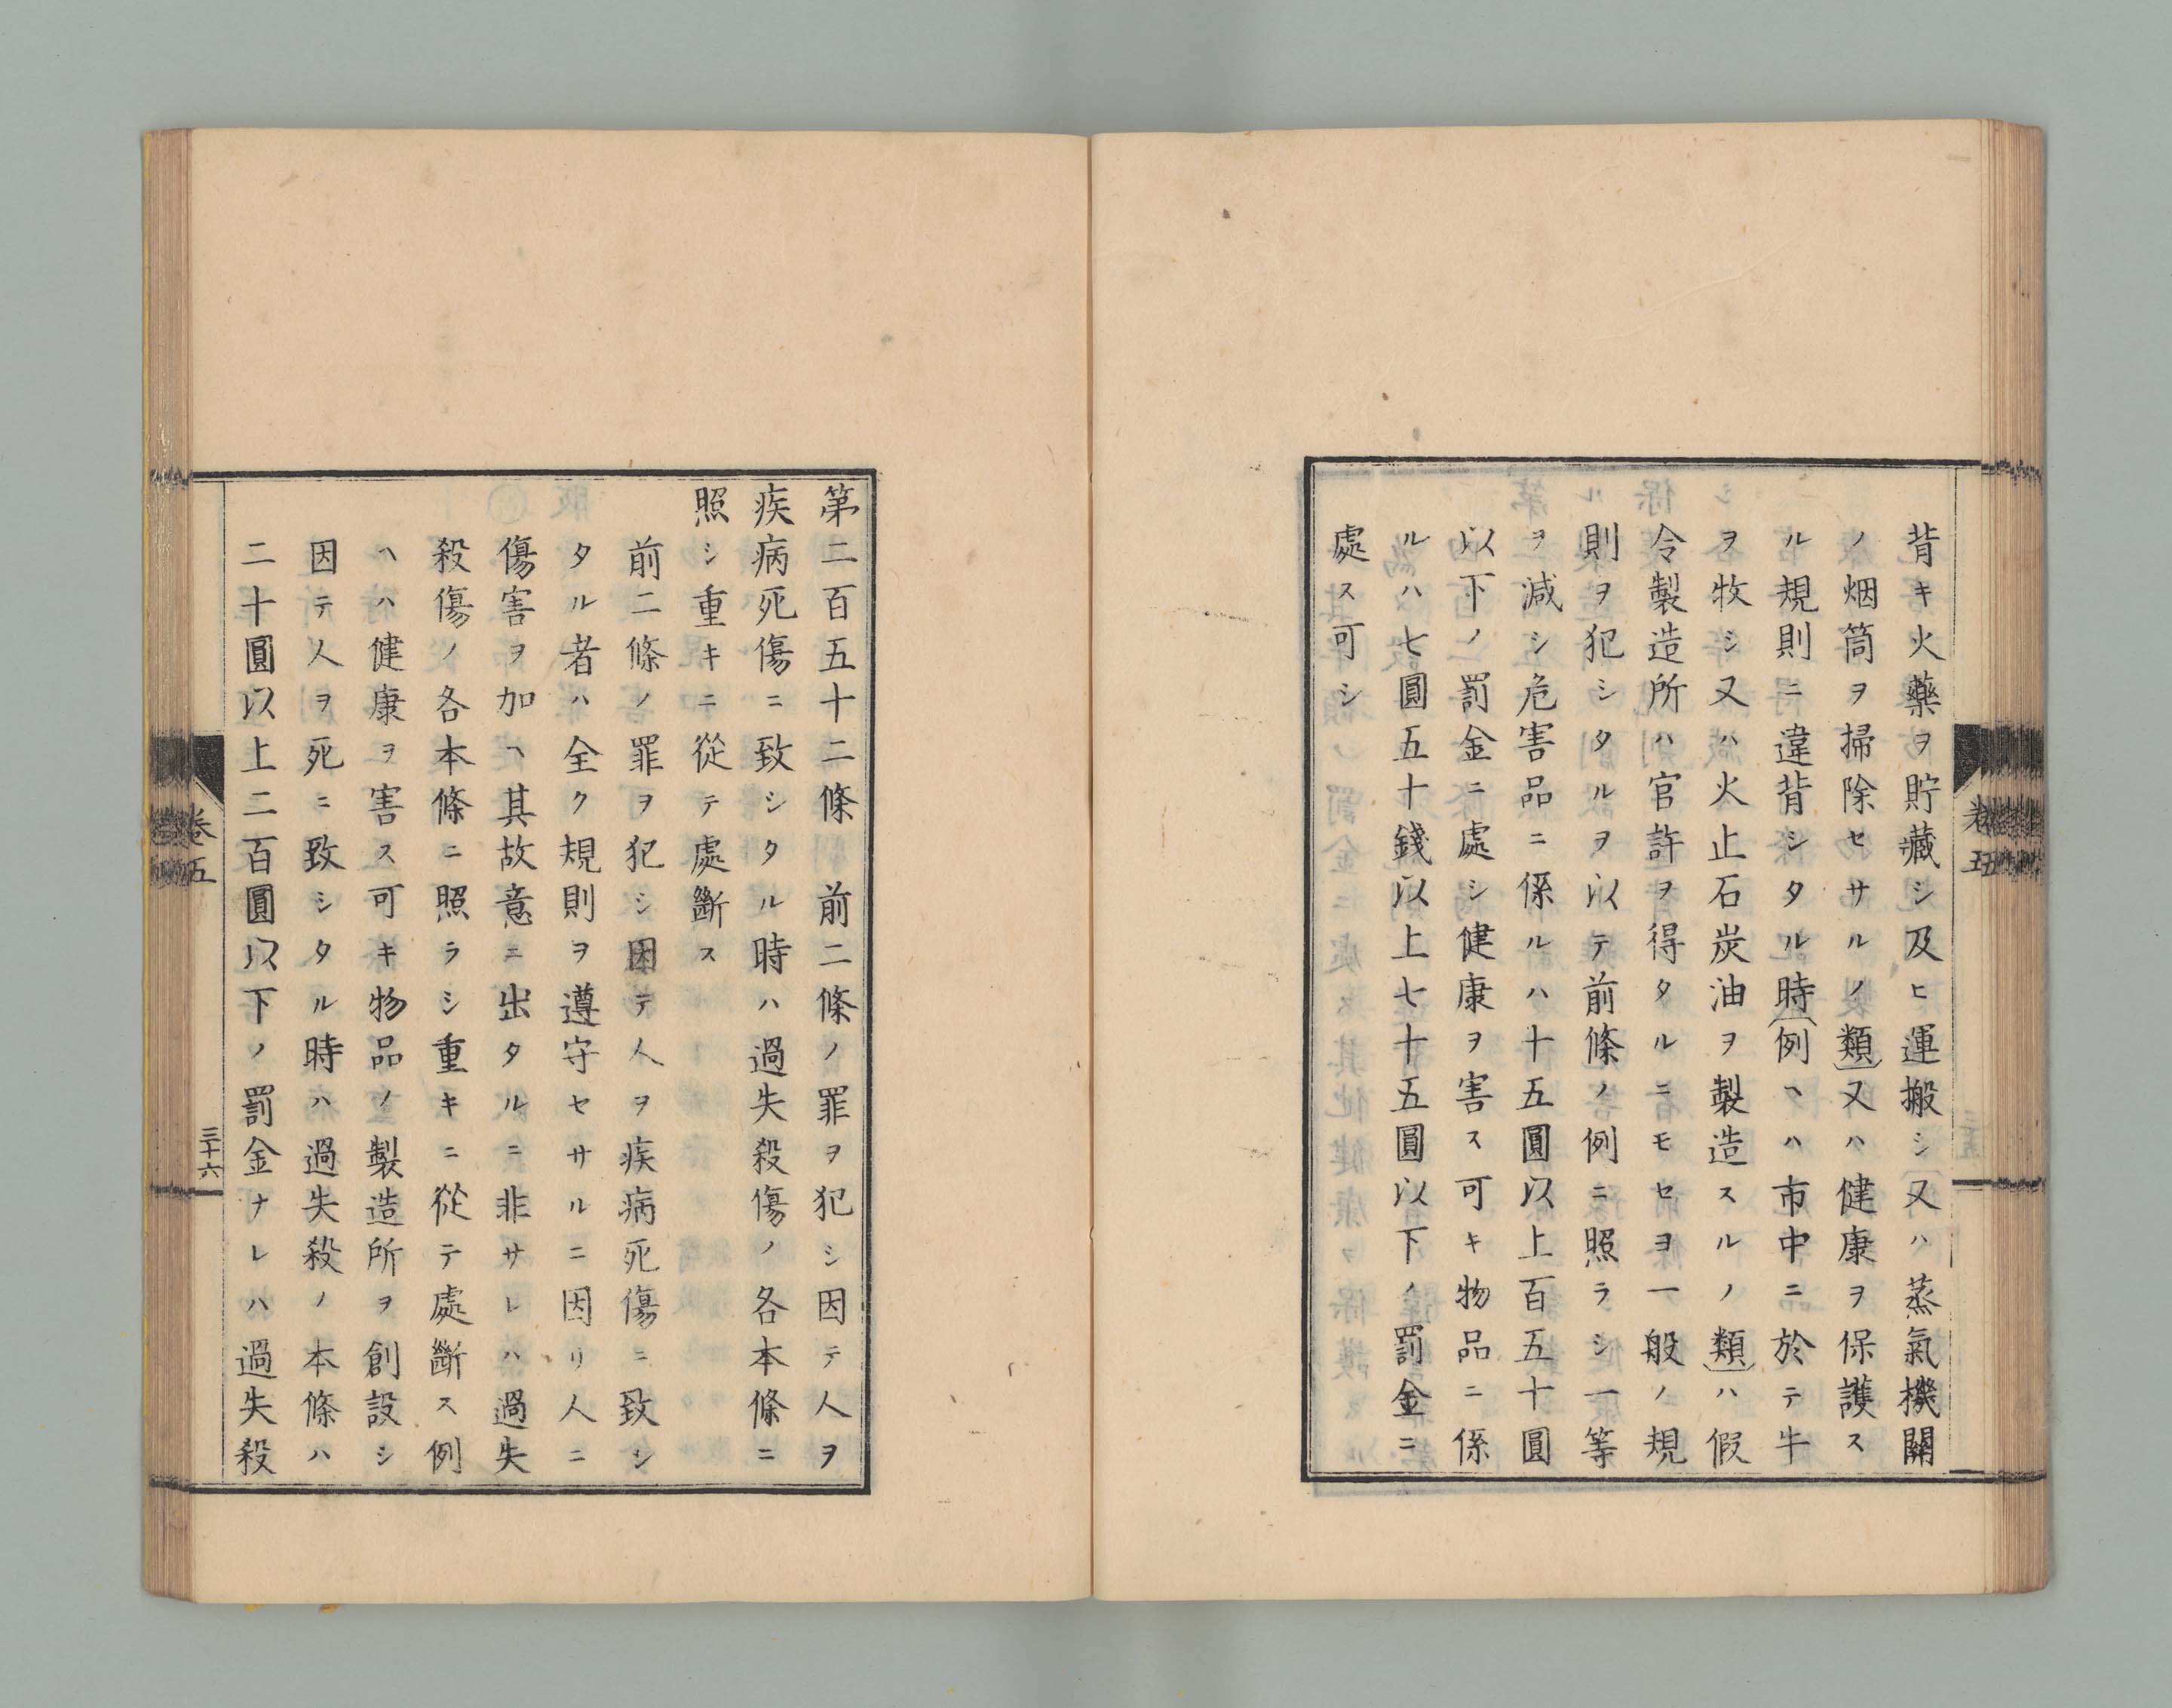 背キ火藥ヲ貯藏シ及ヒ運搬シ又ハ蒸氣機關
ノ烟筒ヲ掃除セサルノ類)又ハ健康ヲ保護ス
ル規則ニ違背シタル時(例ヘハ市中ニ於テ牛
ヲ牧シ又ハ火止石炭油ヲ製造スルノ類)ハ假
令製造所ハ官許ヲ得タルニモセヨ一般ノ規
則ヲ犯シタルヲ以テ前條ノ例ニ照ラシ一等
ヲ減シ危害品ニ係ルハ十五圓以上百五十圓
以下ノ罰金ニ處シ健康ヲ害ス可キ物品ニ係
ルハ七圓五十錢以上七十五圓以下ノ罰金ニ
處ス可シ
卷五
第二百五十二條 前二條ノ罪ヲ犯シ因テ人ヲ
疾病死傷ニ致シタル時ハ過失殺傷ノ各本條ニ
照シ重キニ從テ處斷ス
前二條ノ罪ヲ犯シ因テ人ヲ疾病死傷ニ致シ
タル者ハ全ク規則ヲ遵守セサルニ因リ人ニ
傷害ヲ加ヘ其故意ニ出タルニ非サレハ過失
殺傷ノ各本條ニ照ラシ重キニ從テ處斷ス例
ヘハ健康ヲ害ス可キ物品ノ製造所ヲ創設シ
因テ人ヲ死ニ致シタル時ハ過失殺ノ本條ハ
二十圓以上二百圓以下ノ罰金ナレハ過失殺
卷五
三十六